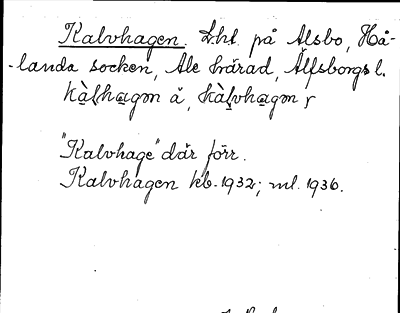 Kalvhagen. Lht. på Älsbo, Hå-
-landa socken, Ale härad, Älfsborgs l.
"Kalvhage" där förr.
Kalvhagen kb. 1932; ml. 1936.